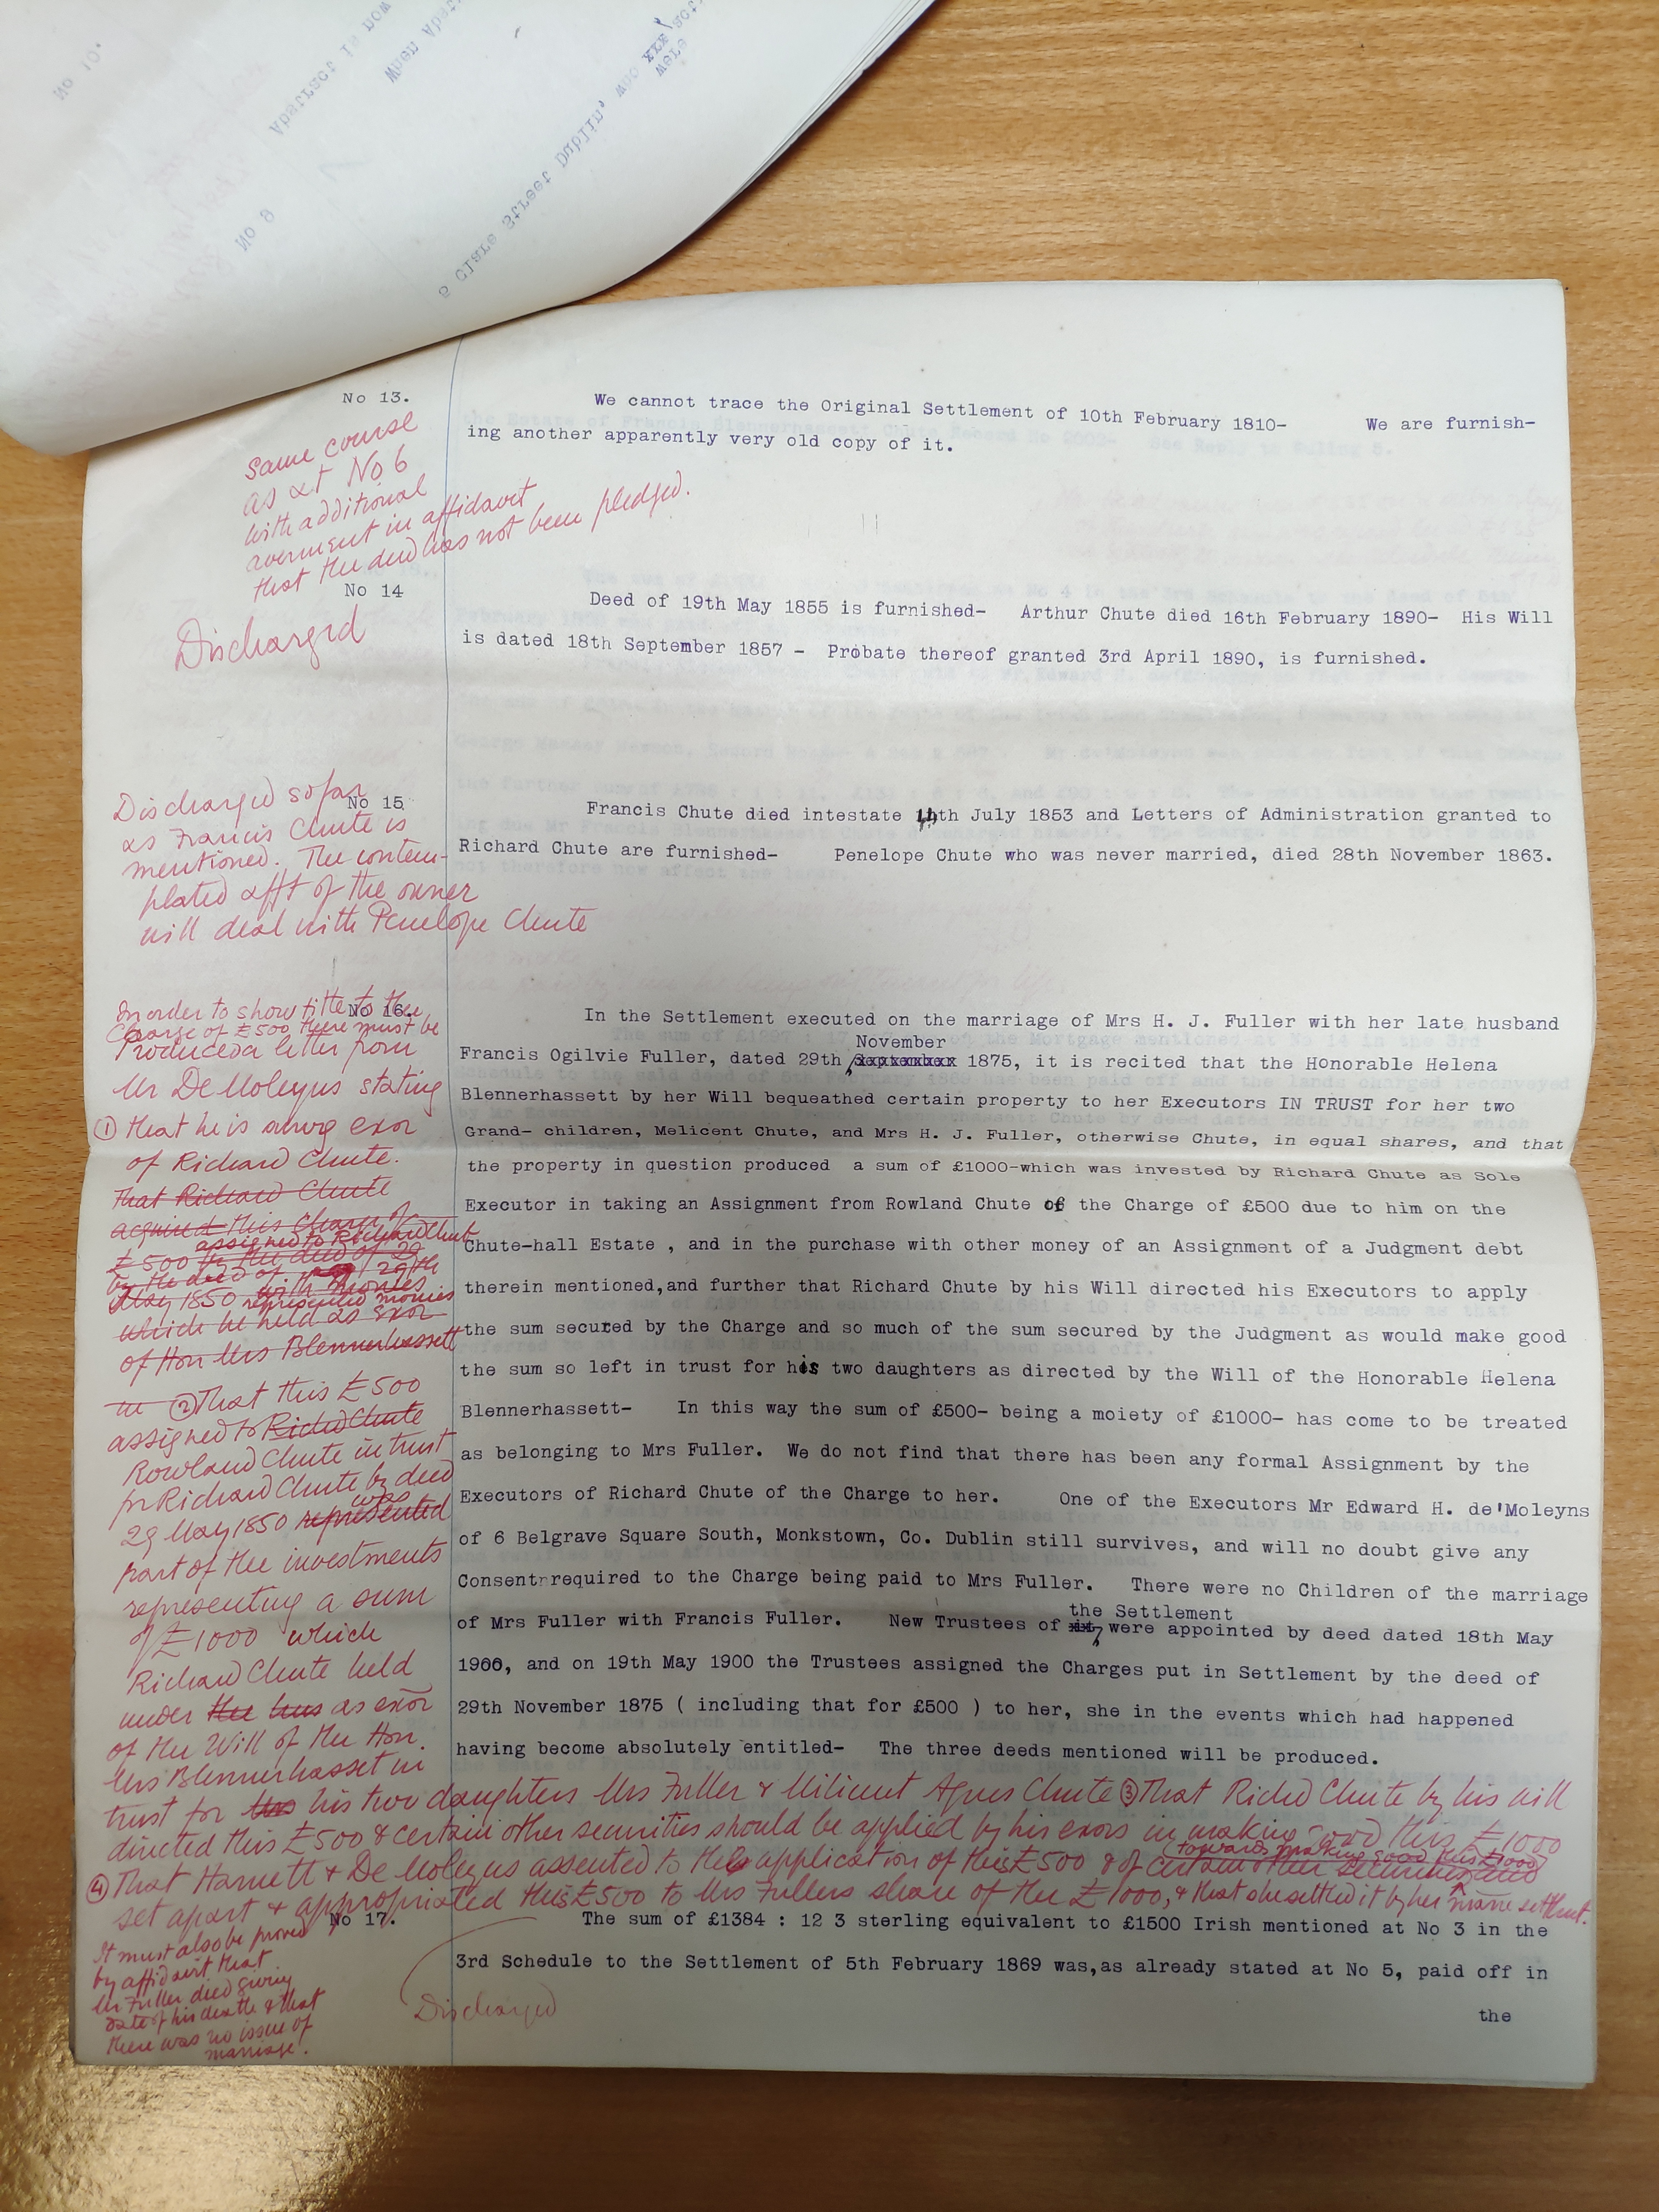 No 13.
We cannot trace the Original Settlement of 10th February 1810- We are furnish-
ing another apparently very old copy of it.
Same course
as at No 6
with additional
averment in affidavit
that the deed has not been pledged.
No 14
Discharged
Deed of 19th May 1855 is furnished- Arthur Chute died 16th February 1890- His Will
is dated 18th September 1857 - Probate thereof granted 3rd April 1890, is furnished.
No 15
Discharged so far
as Francis Chute is
mentioned. The contem-
plated afft of the owner
will deal with Penelope Chute
Francis Chute died intestate 11th July 1853 and Letters of Administration granted to
Richard Chute are furnished- Penelope Chute who was never married, died 28th November 1863.
No 16.
In order to show title to the
Charge of £500 there must be
Produced a letter from
Mr De Moleyns stating
① that he is survg exor
of Richard Chute.
That Richard Chute
acquired this Charge of
assigned to Richard Chute
£500 by the deed of 29
by the deed of 29th
May 1850 with monies
represented monies
which he held as exor
of Hon Mrs Blennerhassett
in ② That this £500
assigned to Richd Chute
Rowland Chute in trust
for Richard Chute by deed
was
29 May 1850 represented
part of the investments
representing a sum
of £1000 which
Richard Chute held
under the as exor
of the Will of the Hon.
Mrs Blennerhasset in
trust for his two daughters Mrs Fuller & Milicent Agnes Chute ③ That Richd Chute by his will
directed this £500 & certain other securities should be applied by his exors in making good this £1000
towards making good this £1000
④ That Harnett & De Moleyns assented to the application of this £500 & of certain other securities and
set apart & appropriated this £500 to Mrs Fullers share of the £1000, & that she settled it by her marre settlmt.
In the Settlement executed on the marriage of Mrs H. J. Fuller with her late husband
November
Francis Ogilvie Fuller, dated 29th September 1875, it is recited that the Honorable Helena
Blennerhassett by her Will bequeathed certain property to her Executors IN TRUST for her two
Grand- children, Melicent Chute, and Mrs H. J. Fuller, otherwise Chute, in equal shares, and that
the property in question produced a sum of £1000-which was invested by Richard Chute as Sole
Executor in taking an Assignment from Rowland Chute of the Charge of £500 due to him on the
Chute-hall Estate , and in the purchase with other money of an Assignment of a Judgment debt
therein mentioned,and further that Richard Chute by his Will directed his Executors to apply
the sum secured by the Charge and so much of the sum secured by the Judgment as would make good
the sum so left in trust for his two daughters as directed by the Will of the Honorable Helena
Blennerhassett- In this way the sum of £500- being a moiety of £1000- has come to be treated
as belonging to Mrs Fuller. We do not find that there has been any formal Assignment by the
Executors of Richard Chute of the Charge to her. One of the Executors Mr Edward H. de'Moleyns
of 6 Belgrave Square South, Monkstown, Co. Dublin still survives, and will no doubt give any
Consent required to the Charge being paid to Mrs Fuller. There were no Children of the marriage
the Settlement
of Mrs Fuller with Francis Fuller. New Trustees of it, were appointed by deed dated 18th May
1900, and on 19th May 1900 the Trustees assigned the Charges put in Settlement by the deed of
29th November 1875 ( including that for £500 ) to her, she in the events which had happened
having become absolutely entitled- The three deeds mentioned will be produced.
No 17.
It must also be proved
by affidavit that
Mr Fuller died giving
date of his death & that
there was no issue of
marriage.
Discharged
The sum of £1384 : 12 3 sterling equivalent to £1500 Irish mentioned at No 3 in the
3rd Schedule to the Settlement of 5th February 1869 was,as already stated at No 5, paid off in
the
No 10.
No 9
5 Clare Street Dublin,
were